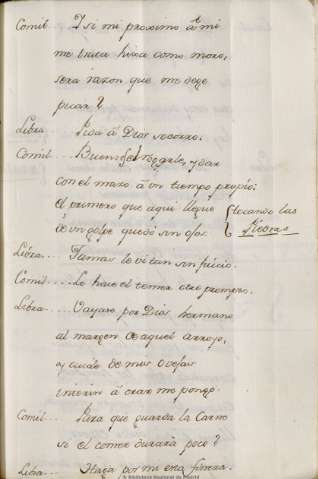 Comil. Y si mi proximo â mi
me trata hixa como moro,
sera razon que me dege
picar?
Libra. Pida â Dios socorro.
Comil... Bueno es el rogarle, y dar
con el mazo â un tiempo propio:
el primero que aqui llegue
de un golpe quedó sin ojos. tocando las Piedras
Libra.... Jamas le vi tan sin juicio.
Comil.... Lo hace el temer otro
Libra.... Vayase por Dios hermano
al margen de aquel arroyo,
y cuide de mis Ovejas
interin â orar me pongo.
Comil... Para que guarda la Carne
si el comer durará poco?
Libra... Haga por mi esta fineza.
Biblioteca Nacional de España